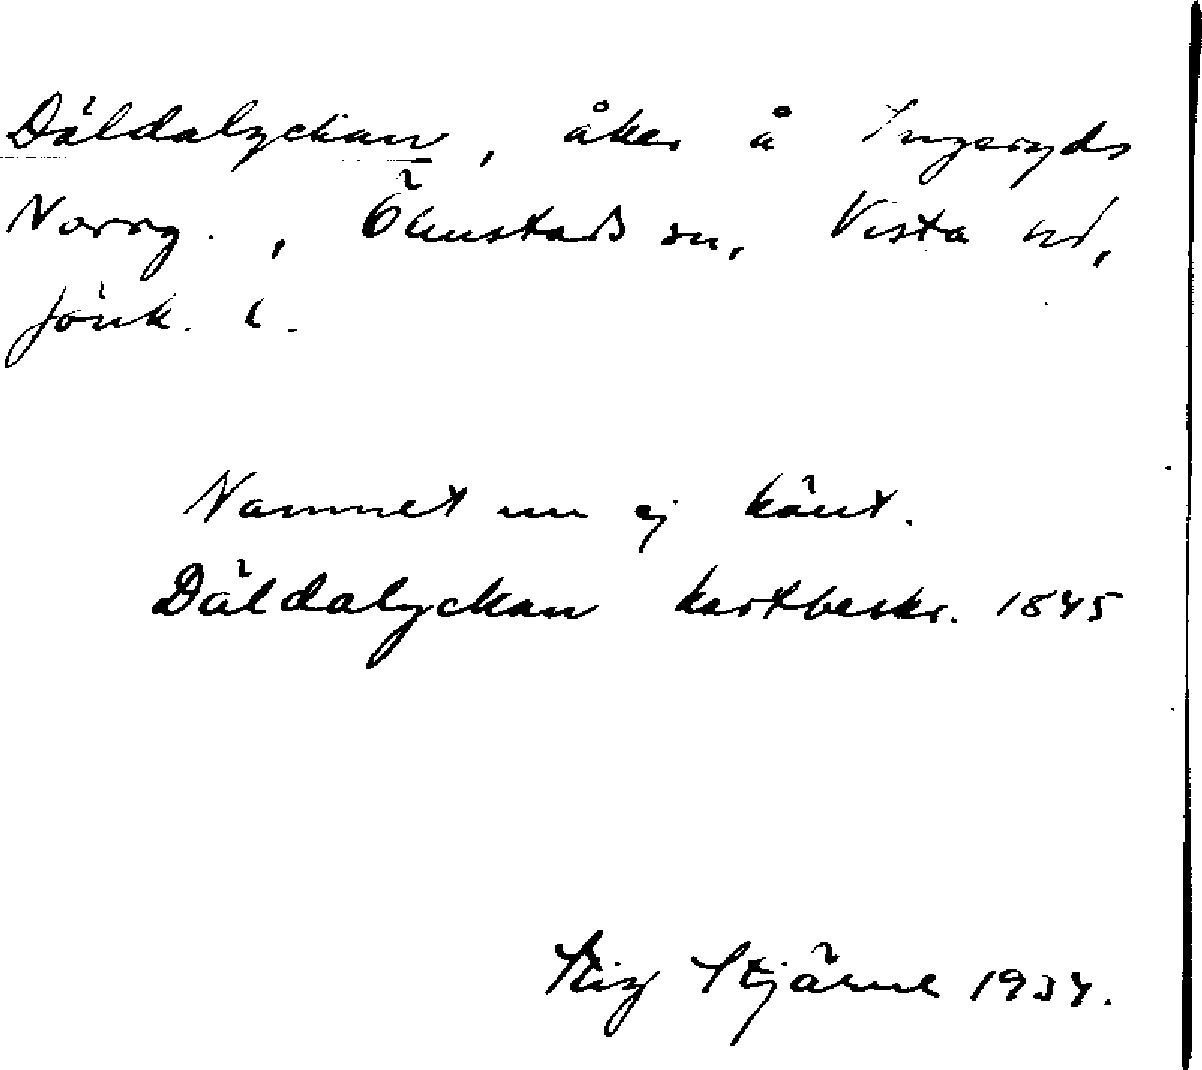 Däldalyckan, åker å Ingeryds
Norrg., Ölmstads sn, Vista hd,
Jönk. l.
Namnet nu ej känt.
Däldalyckan kartbeskr. 1845
Stig Stjärne 1934.